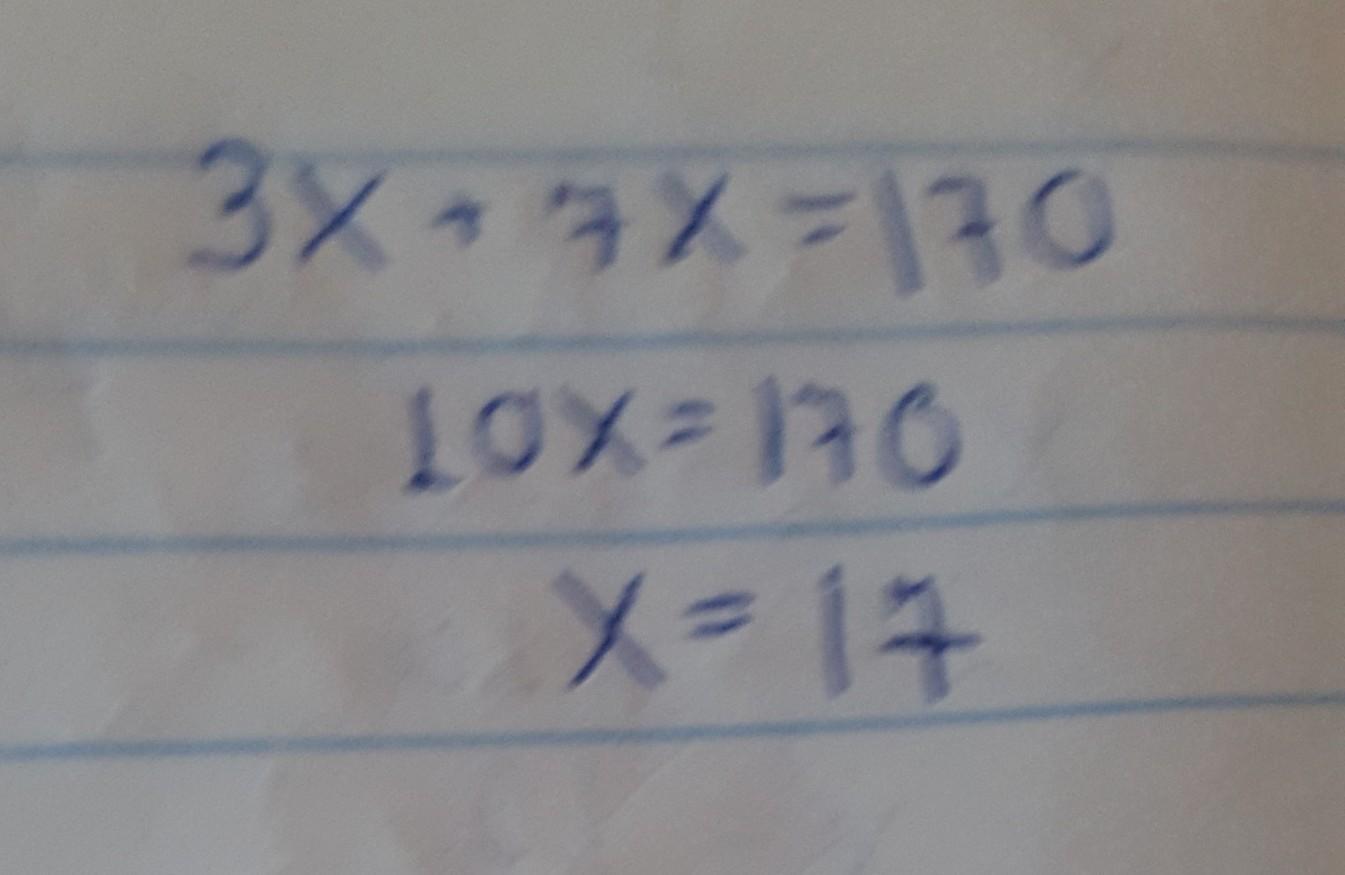 3x + 7x = 170
10x = 170
x = 17